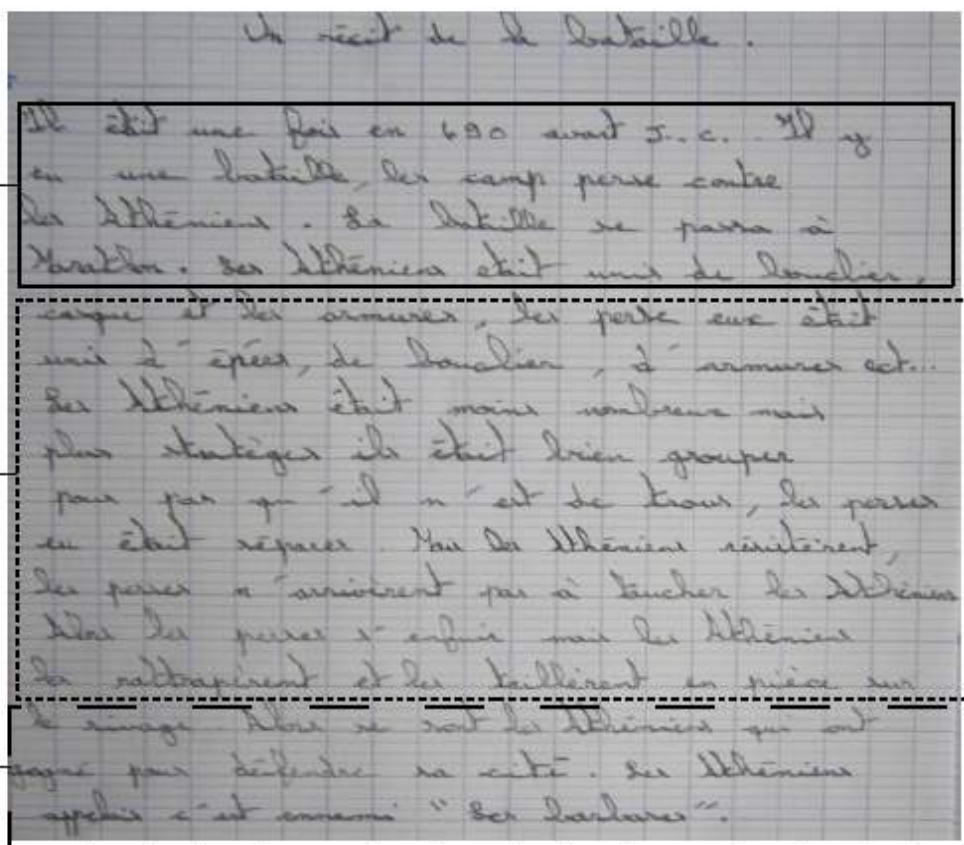 Un récit de la bataille.
Il était une fois en 490 avant J.-c. Il y
eu une bataille, les camp perse contre
les Athéniens. La bataille se passa à
Marathon. Les Athéniens était unis de bouclier,
casque et des armures, les perse eux était
unis d'épées, de bouclier, d'armures ect...
Les Athéniens était moins nombreux mais
plus stratèges ils était bien grouper
pour pas qu'il n'est de trous, les perses
eu était séparer. Mais les Athéniens résistèrent,
les perses n'arrivèrent pas à toucher les Athéniens
Alors les perses s'enfuir mais les Athéniens
les rattrapèrent et les taillèrent en pièce sur
le rivage. Alors se sont les Athéniens qui ont
gagné pour défendre sa cité. Les Athéniens
appelais c'est ennemi "Les barbares".